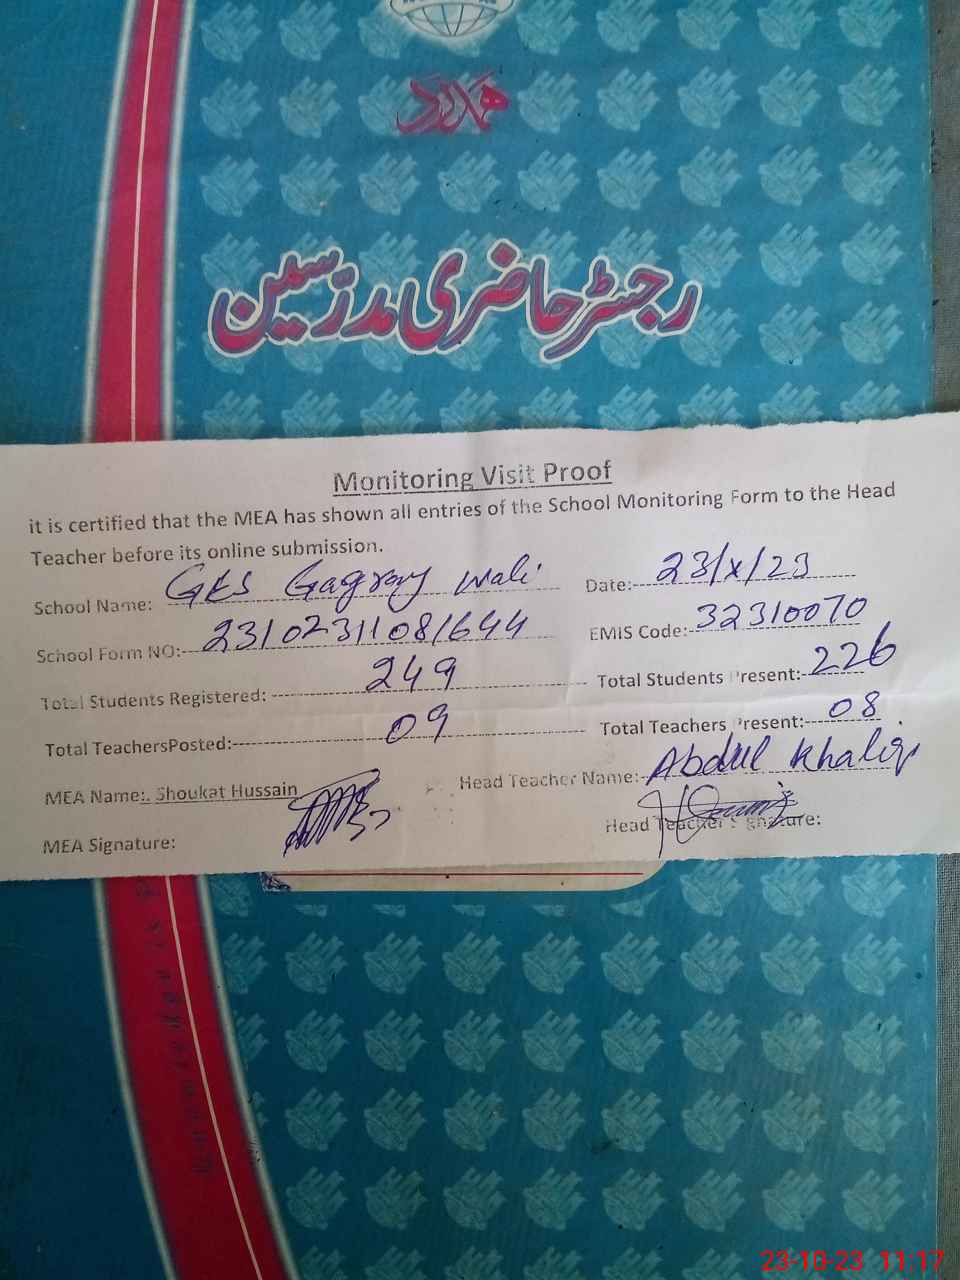 ھمدرد
رجسٹر حاضری مدرسین
Monitoring Visit Proof
it is certified that the MEA has shown all entries of the School Monitoring Form to the Head
Teacher before its online submission.
School Name: GES Gagray Wali Date: 23/X/23
School Form NO: 23102311081644 EMIS Code: 32310070
Total Students Registered: 249 Total Students Present: 226
Total TeachersPosted: 09 Total Teachers Present: 08
MEA Name:. Shoukat Hussain Head Teacher Name: Abdul Khaliq
MEA Signature: Head Teacher Signature:
23-10-23 11:17